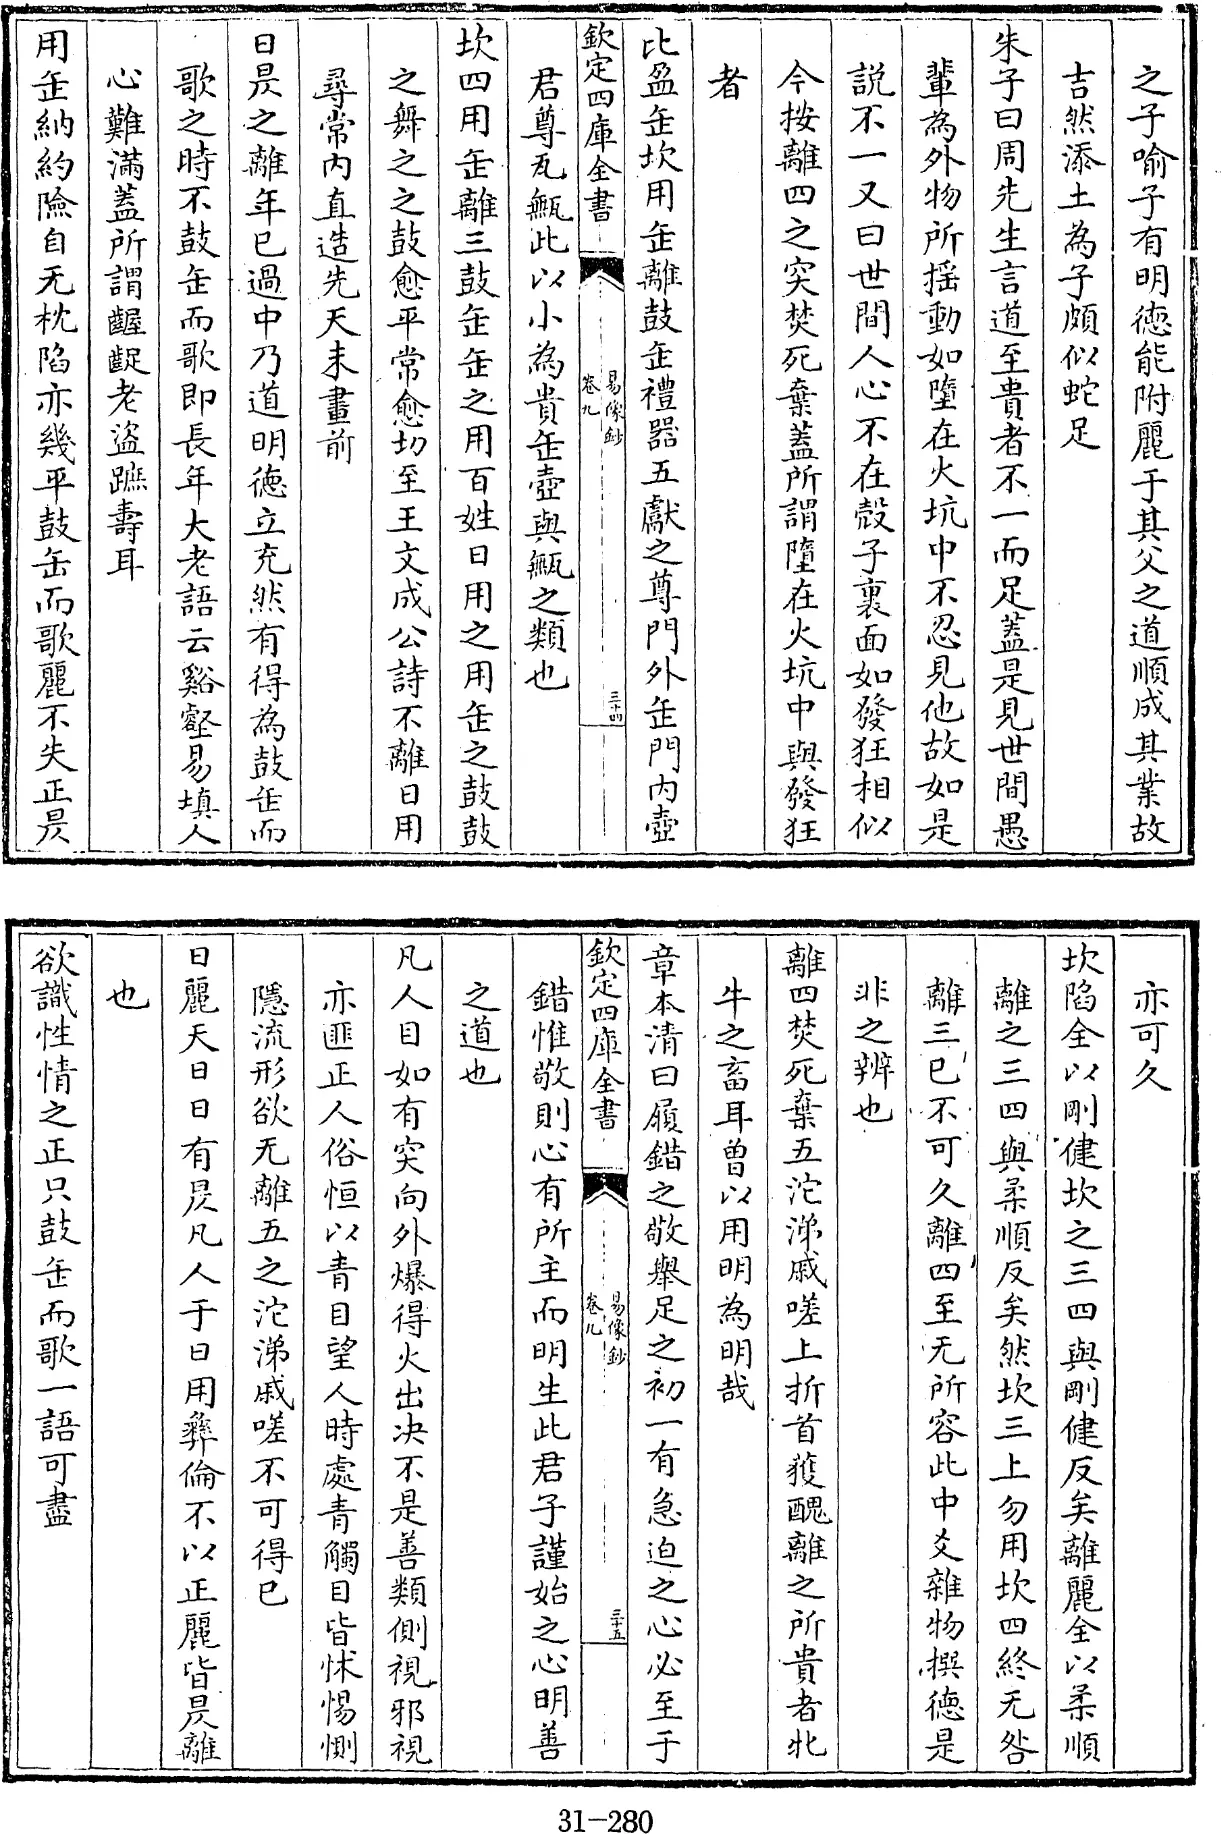 之子喻子有明德能附麗于其父之道順成其業故
吉然添土為子頗似蛇足
朱子曰周先生言道至貴者不一而足蓋是見世間愚
輩為外物所揺動如墮在火坑中不忍見他故如是
説不一又曰世間人心不在殻子裏面如發狂相似
今按離四之突焚死棄蓋所謂墮在火坑中與發狂
者
比盈缶坎用缶離鼓缶禮器五獻之尊門外缶門内壺
欽定四庫全書
易像鈔
卷九
三十四
君尊瓦甒此以小為貴缶壺與甒之類也
坎四用缶離三鼓缶缶之用百姓日用之用缶之鼓鼓
之舞之之鼓愈平常愈切至王文成公詩不離日用
尋常内直造先天未畫前
日昃之離年已過中乃道明德立充然有得為鼓缶而
歌之時不鼓缶而歌即長年大老語云谿壑易填人
心難滿蓋所謂齷齪老盜蹠壽耳
用缶納約險自无枕陷亦幾平鼓缶而歌麗不失正昃
亦可久
坎陷全以剛健坎之三四與剛健反矣離麗全以柔順
離之三四與柔順反矣然坎三上勿用坎四終无咎
離三已不可久離四至无所容此中爻雜物撰德是
非之辨也
離四焚死棄五沱涕戚嗟上折首獲醜離之所貴者牝
牛之畜耳曽以用明為明哉
章本清曰履錯之敬舉足之初一有急迫之心必至于
欽定四庫全書
易像鈔
卷九
三十五
錯惟敬則心有所主而明生此君子謹始之心明善
之道也
凡人目如有突向外爆得火出决不是善類側視邪視
亦匪正人俗恒以青目望人時處青觸目皆怵惕惻
隱流形欲无離五之沱涕戚嗟不可得已
日麗天日日有昃凡人于日用彝倫不以正麗皆昃離
也
欲識性情之正只鼓缶而歌一語可盡
31-280